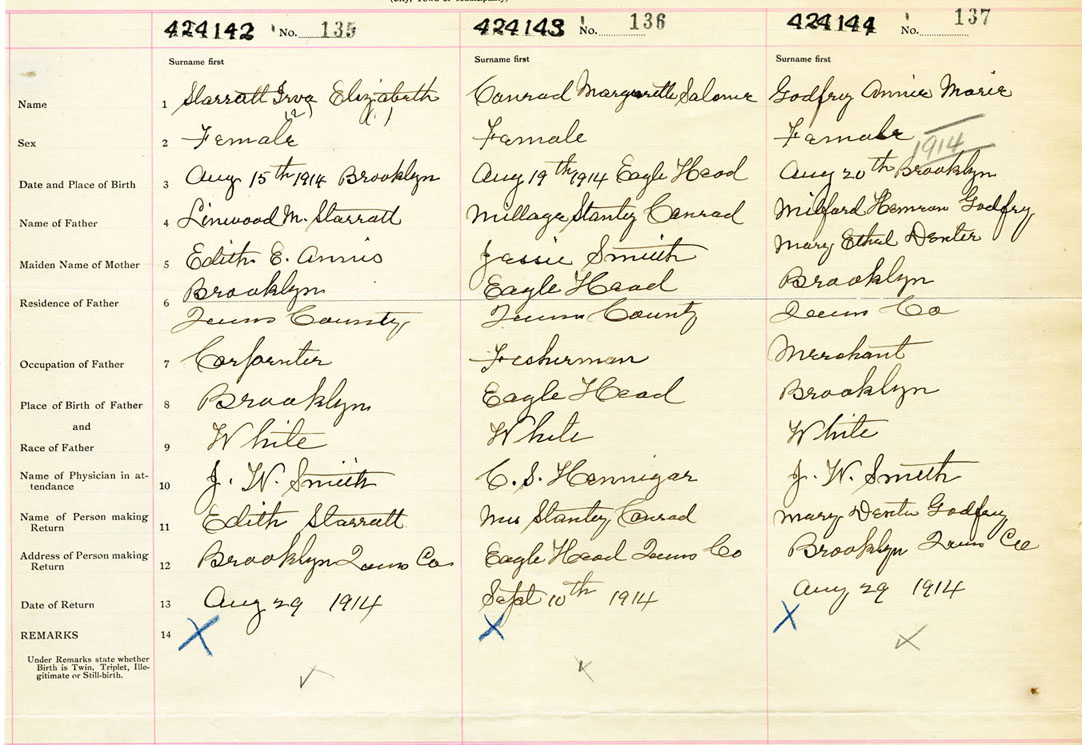 (City, Town or Municipality)
424142 No. 135 424143 No. 136 424144 No. 137
Surname first Surname first Surname first
Name 1 Starratt Irva Elizabeth Conrad Margurette Salome Godfry Annie Marie
(2) (1)
Sex 2 Female Female Female
1914
Date and Place of Birth 3 Aug 15th 1914 Brooklyn Aug 19th 1914 Eagle Head Aug 20th Brooklyn
Name of Father 4 Linwood M. Starratt Millage Stanley Conrad Milford Godfry
Maiden Name of Mother 5 Edith E. Annis Jessie Smith Mary Ethel Dexter
Residence of Father 6 Brooklyn Eagle Head Brooklyn
Queens County Queens County Queens Co
Occupation of Father 7 Carpenter Fisherman Merchant
Place of Birth of Father 8 Brooklyn Eagle Head Brooklyn
and
Race of Father 9 White White White
Name of Physician in at-
tendance 10 J. W. Smith C. S. Hennigar J. W. Smith
Name of Person making
Return 11 Edith Starratt Mrs Stanley Conrad Mary Dexter Godfry
Address of Person making
Return 12 Brooklyn Queens Co Eagle Head Queens Co Brooklyn Queens Co
Date of Return 13 Aug 29 1914 Sept 10th 1914 Aug 29 1914
REMARKS 14 X X X
Under Remarks state whether
Birth is Twin, Triplet, Ille-
gitimate or Still-birth.